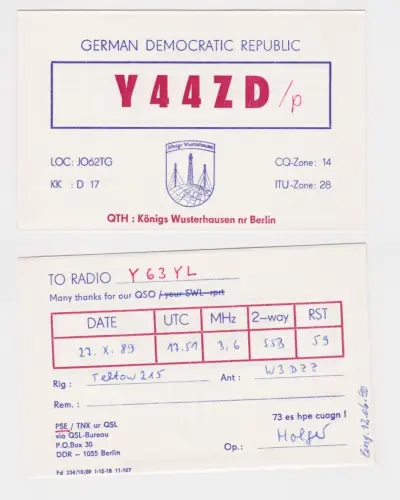 GERMAN DEMOCRATIC REPUBLIC
Y44ZD/p
Königs Wusterhausen
LOC: JO62TG
CQ-Zone: 14
KK : D 17
ITU-Zone: 28
QTH : Königs Wusterhausen nr Berlin
TO RADIO Y63YL
Many thanks for our QSO / your SWL-rprt
DATE UTC MHz 2-way RST
27. X. 89 17.51 3,6 SSB 59
Rig : Teltow 215 Ant : W3DZZ
Rem. :
PSE / TNX ur QSL
73 es hpe cuagn !
via QSL-Bureau
P.O.Box 30
DDR – 1055 Berlin
Op.: Holger
Fd 234/10/89 I-12-18 11-107